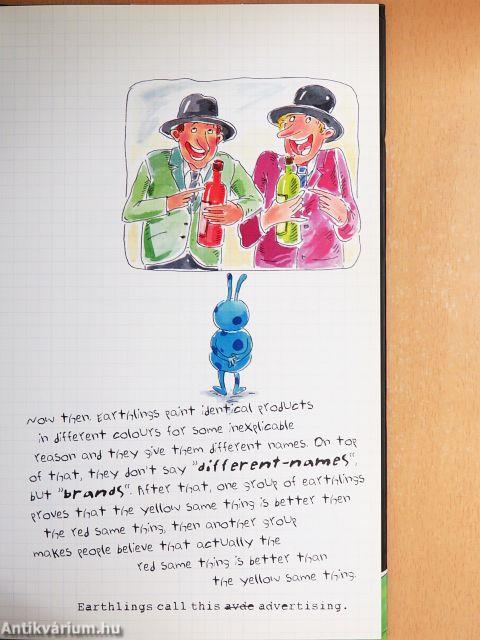 Now then. Earthlings paint identical products
in different colours for some inexplicable
reason and they give them different names. On top
of that, they don't say "different-names",
but "brands". After that, one group of earthlings
proves that the yellow same thing is better then
the red same thing, then another group
makes people believe that actually the
red same thing is better than
the yellow same thing.
Earthlings call this avde advertising.
Antikvárium.hu